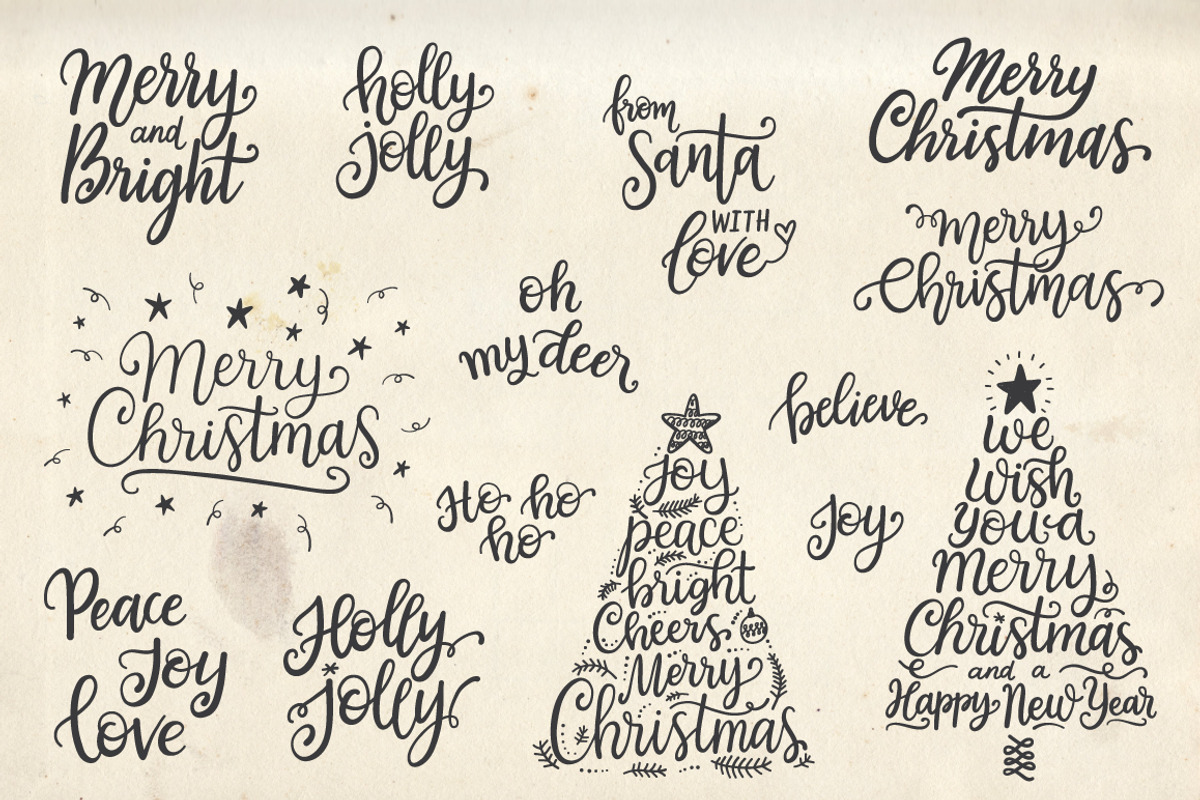 Merry
and
Bright
holly
jolly
from
Santa
WITH
love
Merry
Christmas
Merry
Christmas
oh
my deer
Merry
Christmas
believe
Ho ho
ho
Joy
Joy
peace
bright
Cheers
Merry
Christmas
we
wish
you a
Merry
Christmas
and a
Happy New Year
Peace
Joy
love
Holly
Jolly